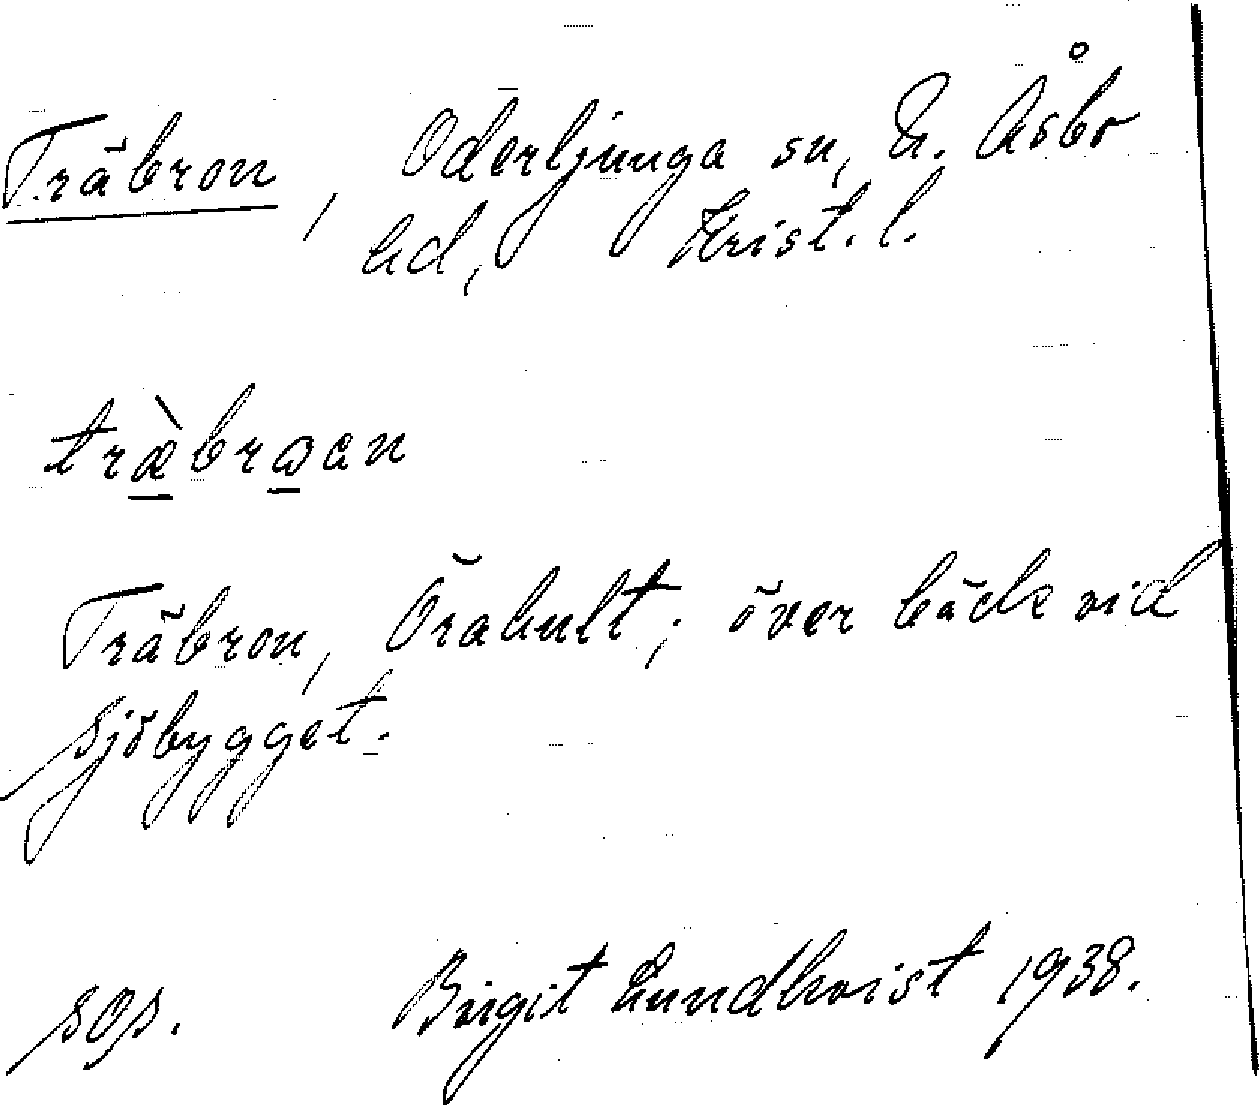 Träbron, Oderljunga sn, N. Åsbo
hd, Krist. l.
træ̀brɷen
Träbron, Örahult; över bäck vid
Sjöbygget.
sops.
Birgit Lundkvist 1938.